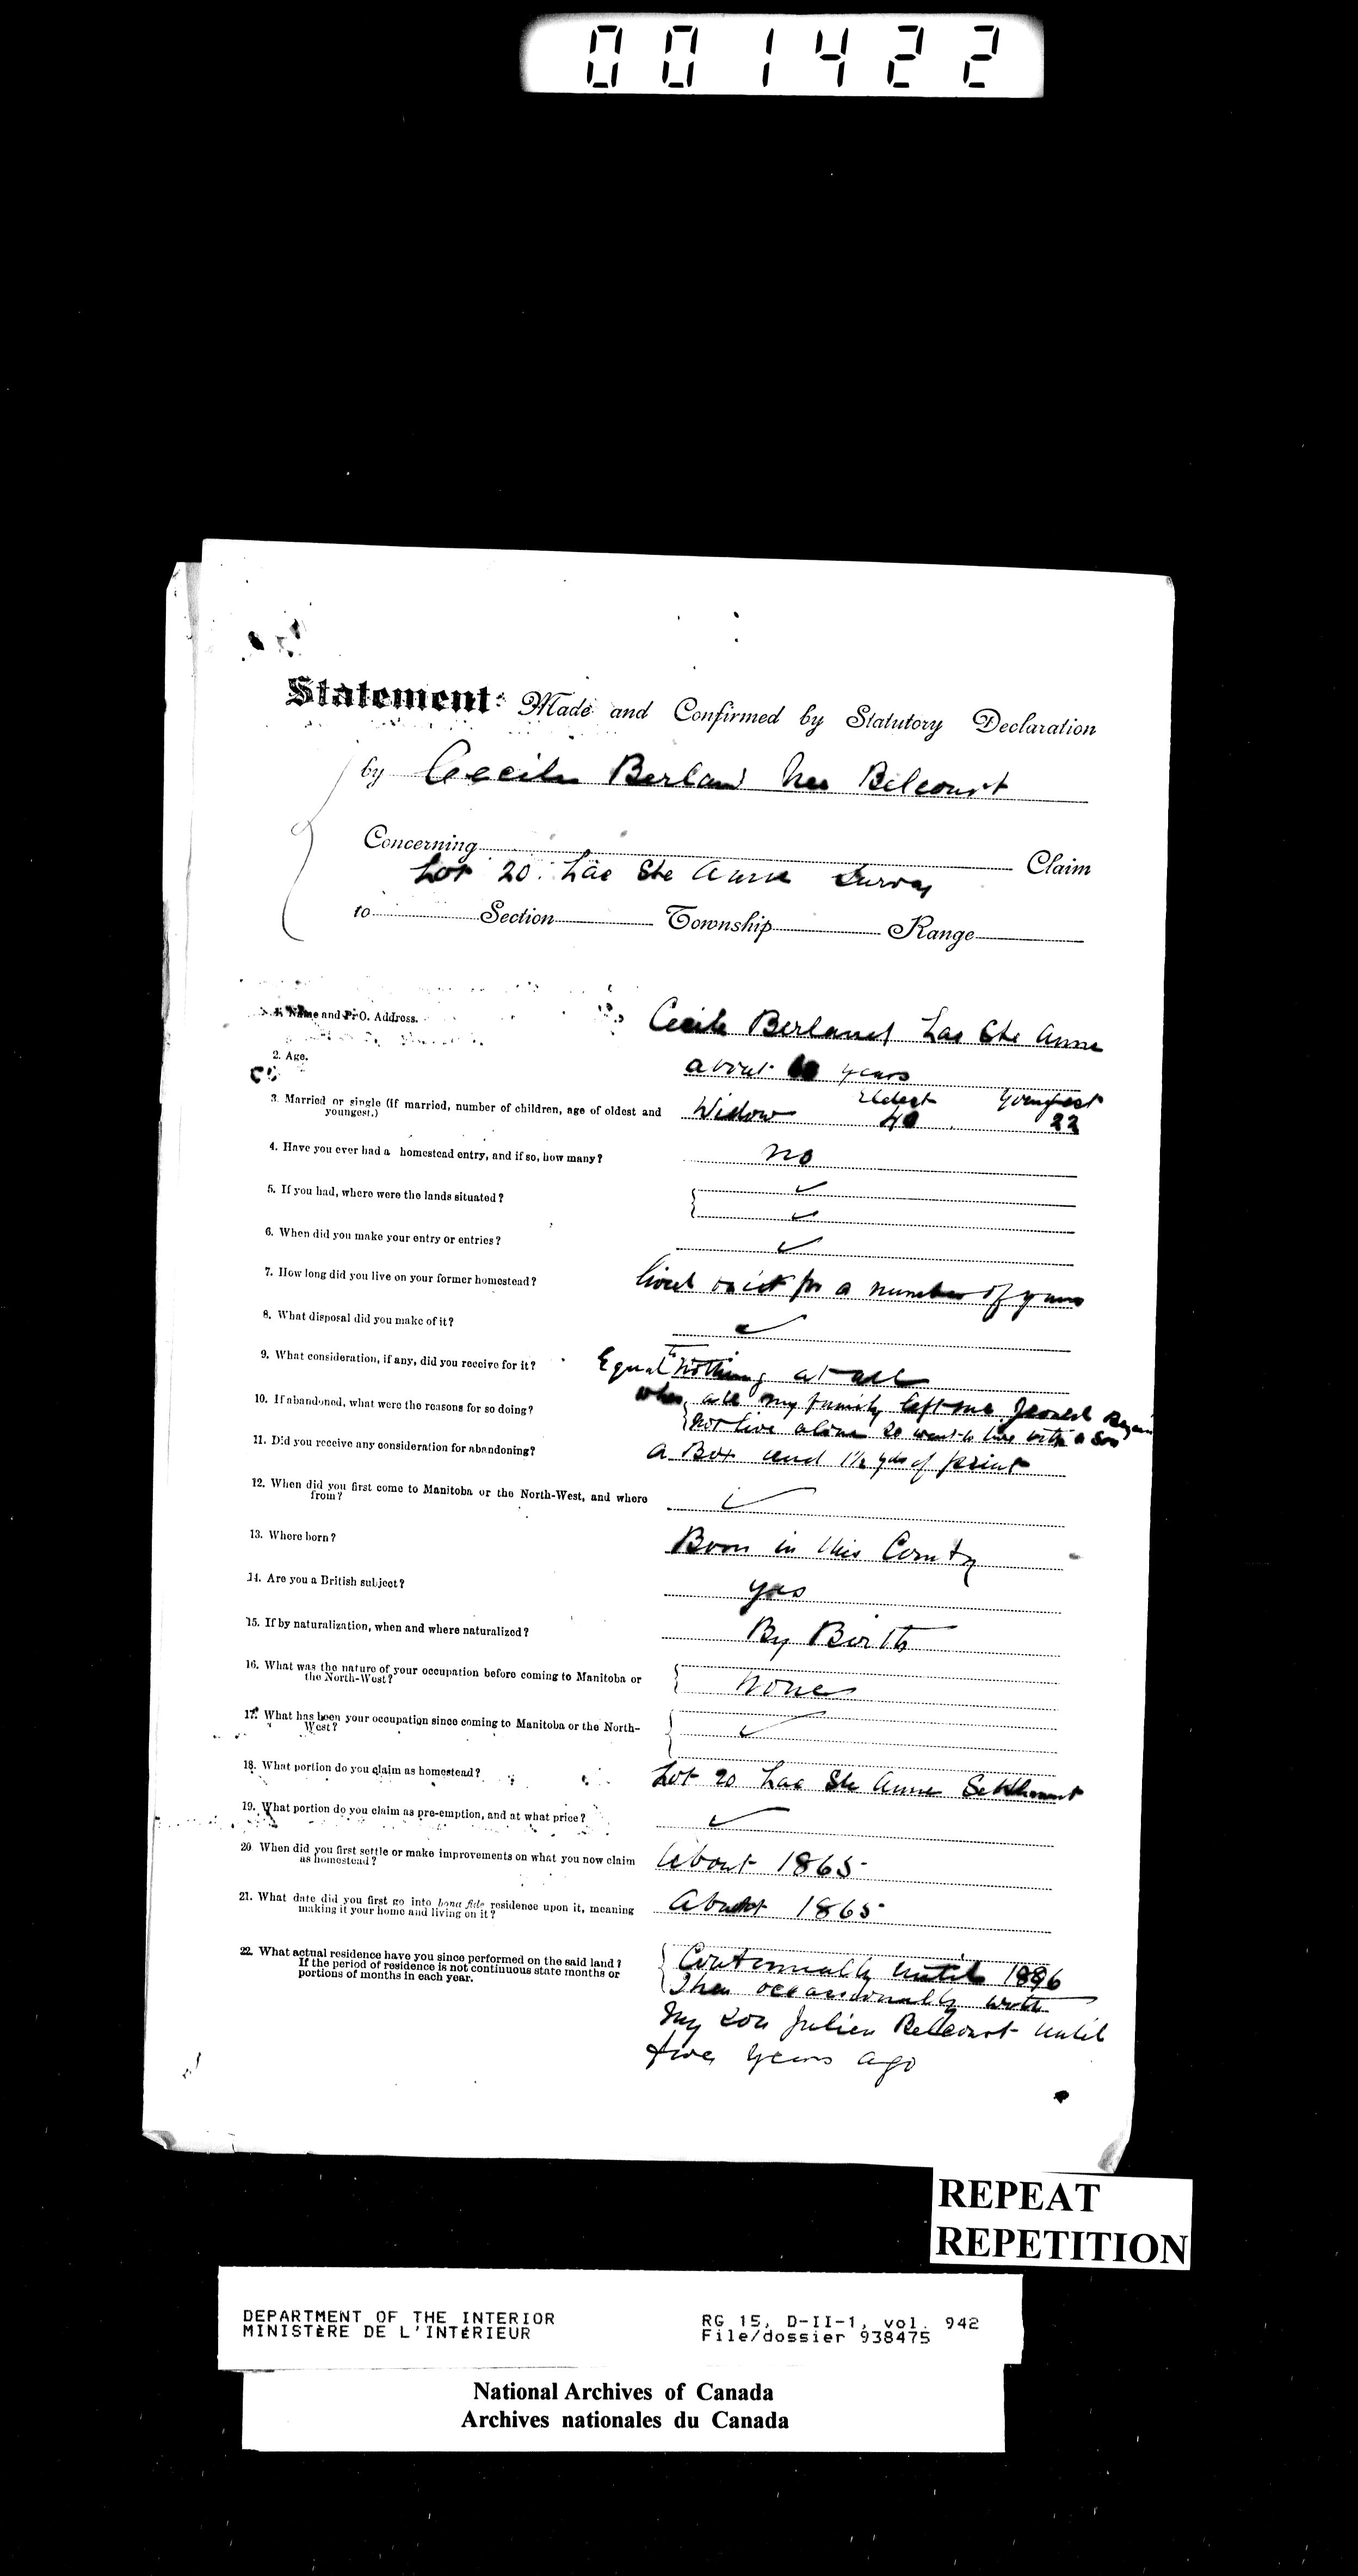 001422
Statement: Made and Confirmed by Statutory Declaration
by Cecile Berland nee Belcourt
Concerning Claim
Lot 20. Lac Ste Anne Survey
to Section Township Range
1. Name and P. O. Address. Cecile Berland Lac Ste Anne
2. Age. about years
Eldest Youngest
3. Married or single (if married, number of children, age of oldest and Widow 40 22
youngest.)
4. Have you ever had a homestead entry, and if so, how many? no
5. If you had, where were the lands situated? ✓
✓
6. When did you make your entry or entries? ✓
7. How long did you live on your former homestead? lived on it for a number of years
8. What disposal did you make of it? ✓
9. What consideration, if any, did you receive for it? Equal to Nothing at all
10. If abandoned, what were the reasons for so doing? when all my family left me I could
not live alone so went to live with a son
11. Did you receive any consideration for abandoning? a Box and 1½ yds of print
12. When did you first come to Manitoba or the North-West, and where ✓
from?
13. Where born? Born in this Country
14. Are you a British subject? yes
15. If by naturalization, when and where naturalized? By Birth
16. What was the nature of your occupation before coming to Manitoba or none
the North-West?
17. What has been your occupation since coming to Manitoba or the North- ✓
West?
18. What portion do you claim as homestead? Lot 20 Lac Ste Anne Settlement
19. What portion do you claim as pre-emption, and at what price? ✓
20 When did you first settle or make improvements on what you now claim About 1865
as homestead?
21. What date did you first go into bona fide residence upon it, meaning About 1865
making it your home and living on it?
22. What actual residence have you since performed on the said land? Continually until 1896
If the period of residence is not continuous state months or Then occasionally with
portions of months in each year.
My son Julien Belcourt until
years ago
REPEAT
REPETITION
DEPARTMENT OF THE INTERIOR RG 15, D-II-1, vol. 942
MINISTÈRE DE L'INTÉRIEUR File/dossier 938475
National Archives of Canada
Archives nationales du Canada